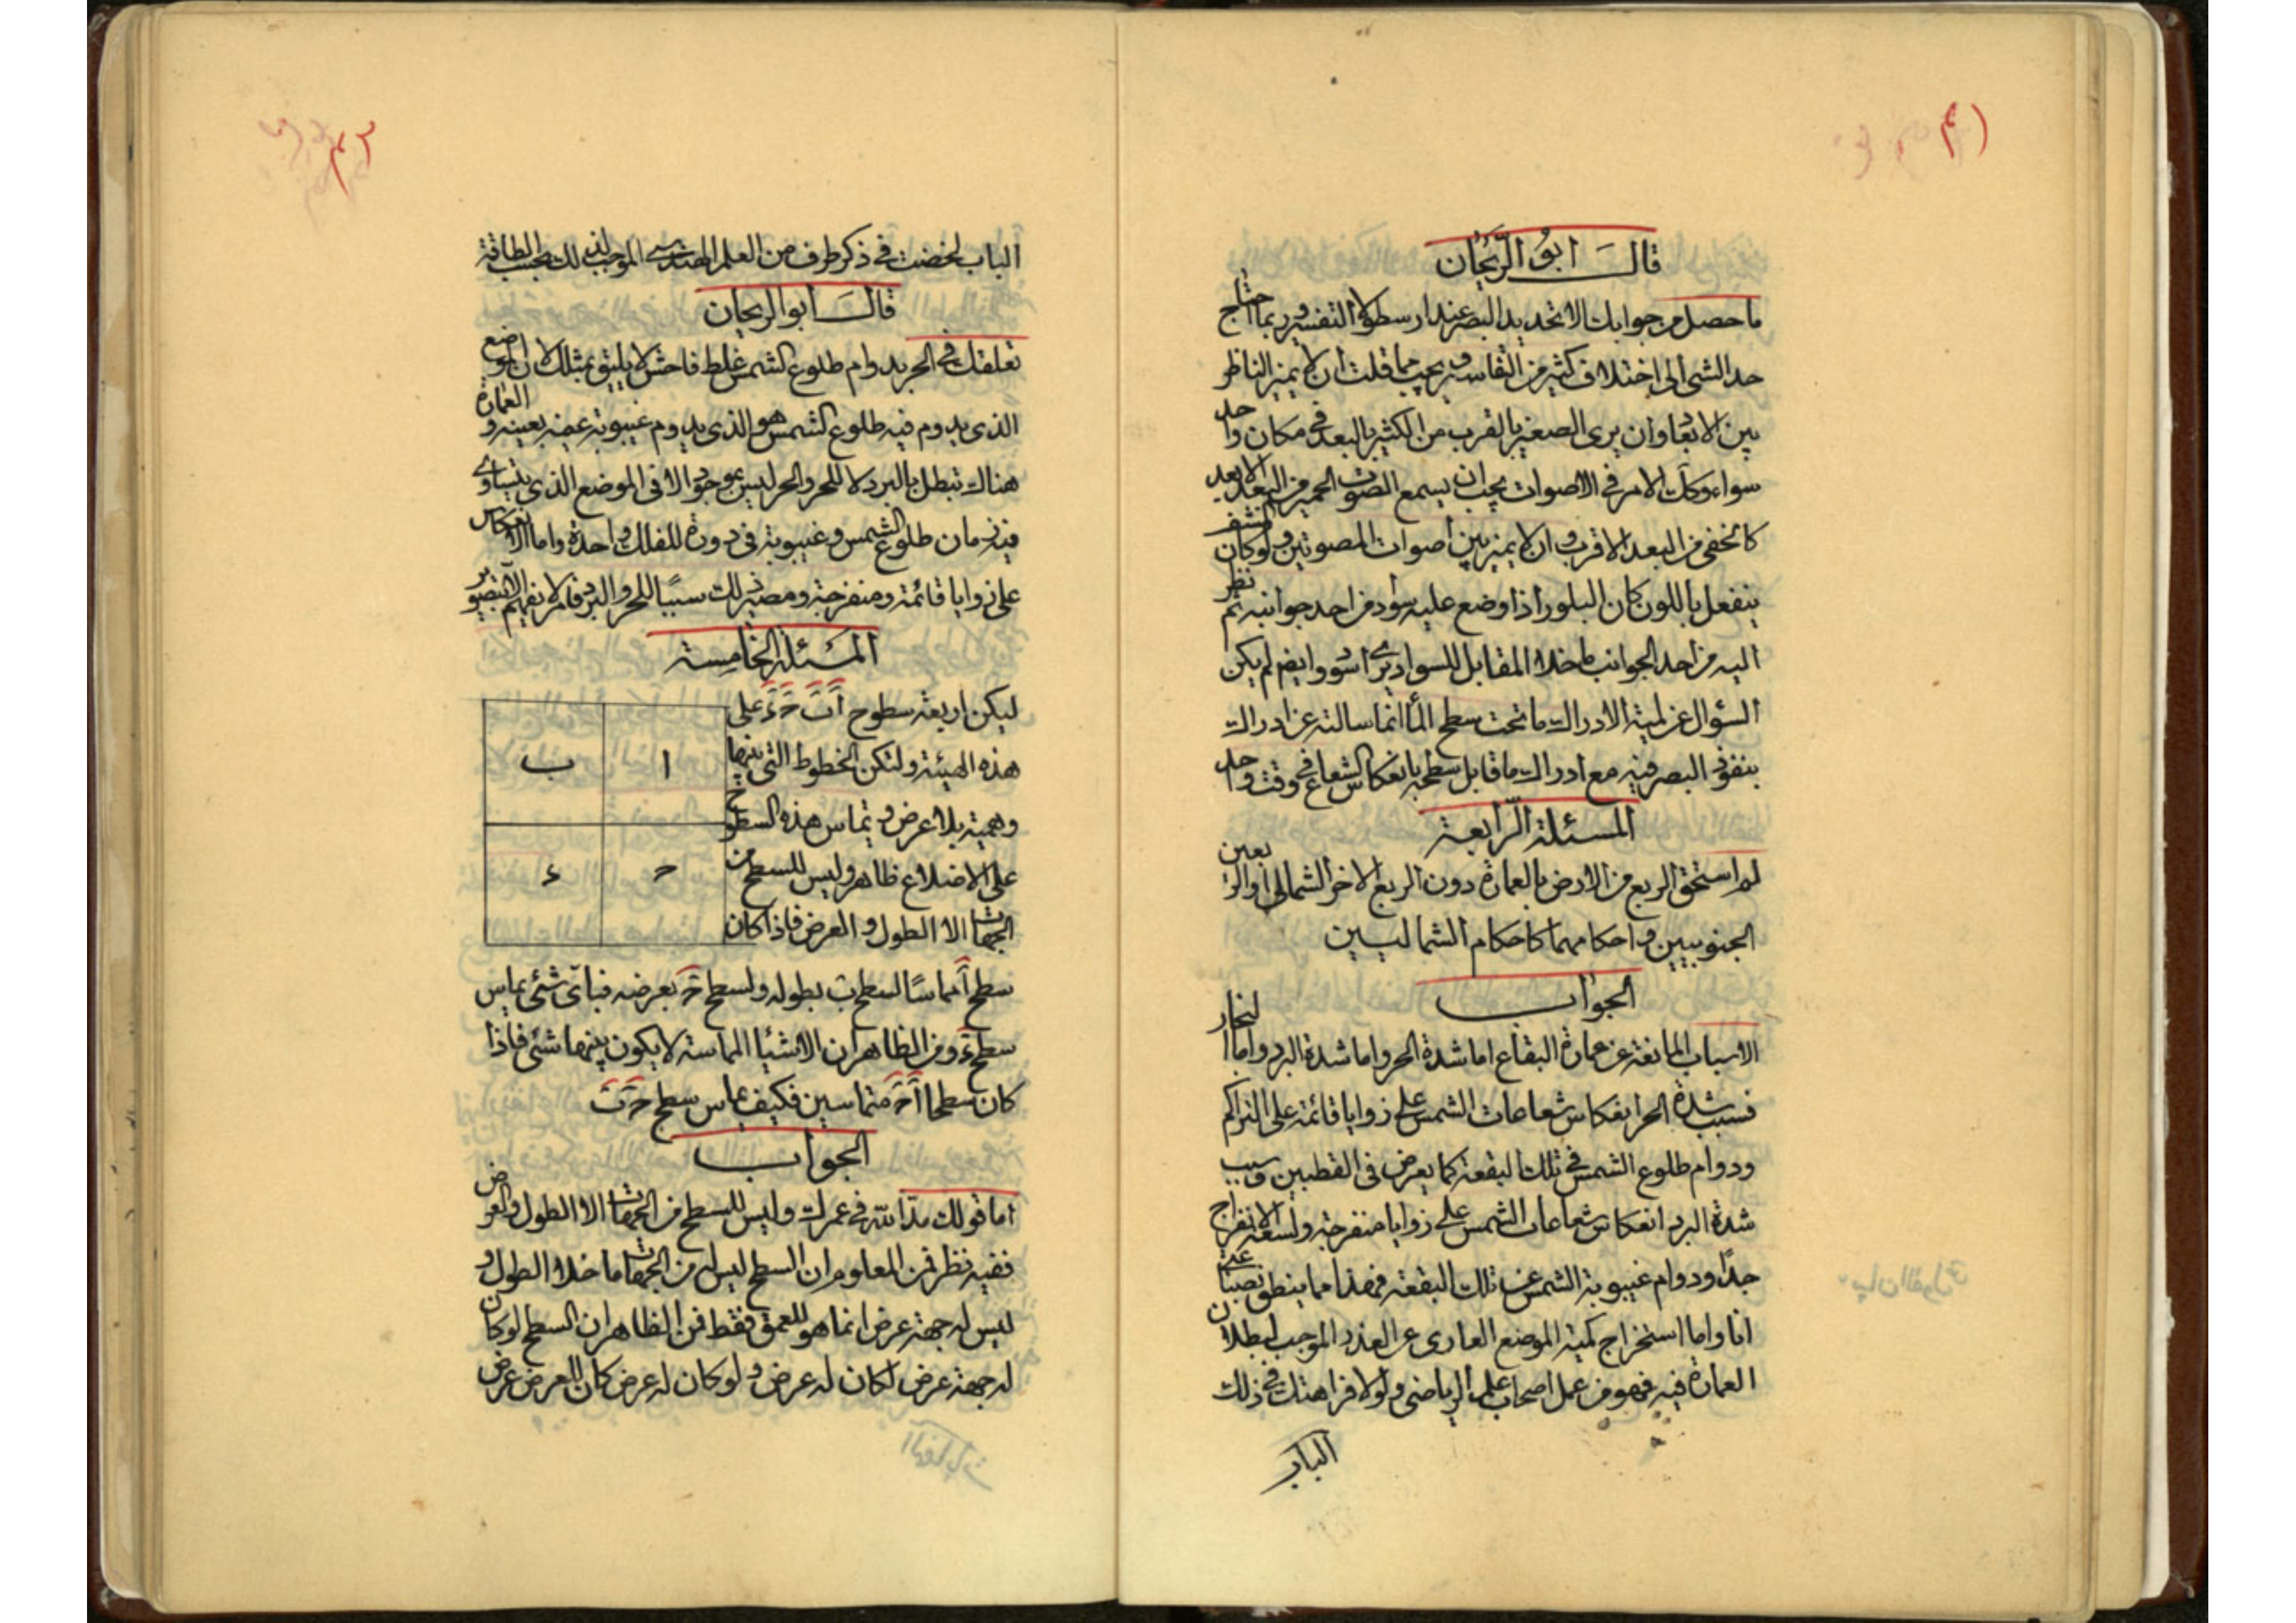 ٤١
قالــ ابو الريحان
ما حصل من جوابك الا تحديد البصر عند ارسطو لا التفسير وربما احتاج
حد الشئ الى اختلاف كثير من التفاسير ويجب مما قلت ان لا يميز الناظر
بين الابعاد وان يرى الصغير بالقرب من الكثير بالبعد فى مكان واحد
سواء وكك الامر فى الاصوات يجب ان يسمع الصوت الجهير من البعد الابعد
كالخفى من البعد الاقرب وان لا يميز بين أصوات المصوتين ولو كان المشف
ينفعل باللون كان البلور اذا وضع عليه سواد من احد جوانبه ثم نظر
اليه من احد الجوانب ما خلا المقابل للسواد يرى اسود وايضا لم يكن
السؤال عن لمية الادراك ما تحت سطح الماء انما سالته عن ادراك
بنفوذ البصر فيه مع ادراك ما قابل سطحه بانعكاس الشعاع فى وقت واحد
المسئلة الرّابعة
لم استحق الربع من الارض بالعمارة دون الربع الاخر الشمالى والربعين
الجنوبيين واحكامهما كاحكام الشماليين
الجواب
الاسباب المانعة عن عمارة البقاع اما شدة الحر واما شدة البرد واما البخار
فسبب شدة الحر انعكاس شعاعات الشمس على زوايا قائمة على التراكم
ودوام طلوع الشمس فى تلك البقعة كما يعرض فى القطبين وسبب
شدة البرد انعكاس شعاعات الشمس على زوايا منفرجة واسعة الانفراج
جدًا ودوام غيبوبة الشمس عن تلك البقعة فهذا مما ينطق
انا واما استخراج كمية الموضع العارى عن العذر الموجب لبطلان
العمارة فيه فهو من عمل اصحاب علم الرياضى ولولا فراهتك فى ذلك
الباب
٤٢
الباب لخضت فى ذكر طرف من العلم الهندسى الموجب لذلك بحسب الطاقة
قالــ ابو الريحان
تعلقك فى الحر بدوام طلوع الشمس غلط فاحش لا يليق بمثلك لان الموضع
الذى يدوم فيه طلوع الشمس هو الذى يدوم غيبوبته عنه بعينه والعمارة
هناك تبطل بالبرد لا للحر والحر ليس بموجود الا فى الموضع الذى يتساوى
فيه زمان طلوع الشمس وغيبوبته فى دورة للفلك واحدة واما الانعكاس
على زوايا قائمة ومنفرجة ومصير ذلك سببًا للحر والبرد فامر لا يفهم الا بتصوير
المسئلة الخامسة
ليكن اربعة سطوح اَ بَ حَ ءَ على
هذه الهيئة ولتكن الخطوط التى بينها
وهمية بلا عرض وتماس هذه السطوح
على الاضلاع ظاهر وليس للسطح من
الجهات الا الطول والعرض فاذا كان
ا ب
ح ء
سطح اَ مماسًا لسطح ب بطوله ولسطح حَ بعرضه فباىّ شئ يماس
سطح ءَ ومن الظاهر ان الاشيا المماسة لا يكون بينهما شئ فاذا
كان سطحا اَ حَ متماسين فكيف يماس سطح حَ بَ
الجواب
اما قولك مدّ الله فى عمرك وليس للسطح من الجهات الا الطول والعرض
ففيه نظر فمن المعلوم ان السطح ليس له من الجهات ما خلا الطول و
ليس له جهة عرض انما هو للعمق فقط فمن الظاهر ان السطح لو كان
له جهة عرض لكان له عرض ولو كان له عرض كان للعرض عرض